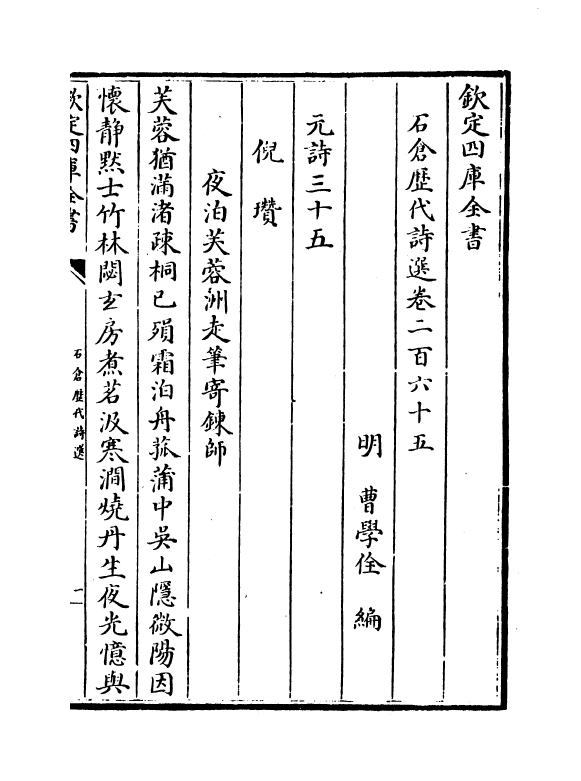 欽定四庫全書
石倉歷代詩選卷二百六十五
明 曹學佺 編
元詩三十五
倪瓚
夜泊芙蓉洲走筆寄鍊師
芙蓉猶滿渚疎桐已殞霜泊舟菰蒲中吳山隱微陽因
懷静黙士竹林閟玄房煮茗汲寒澗燒丹生夜光憶與
欽定四庫全書
石倉歷代詩選
一